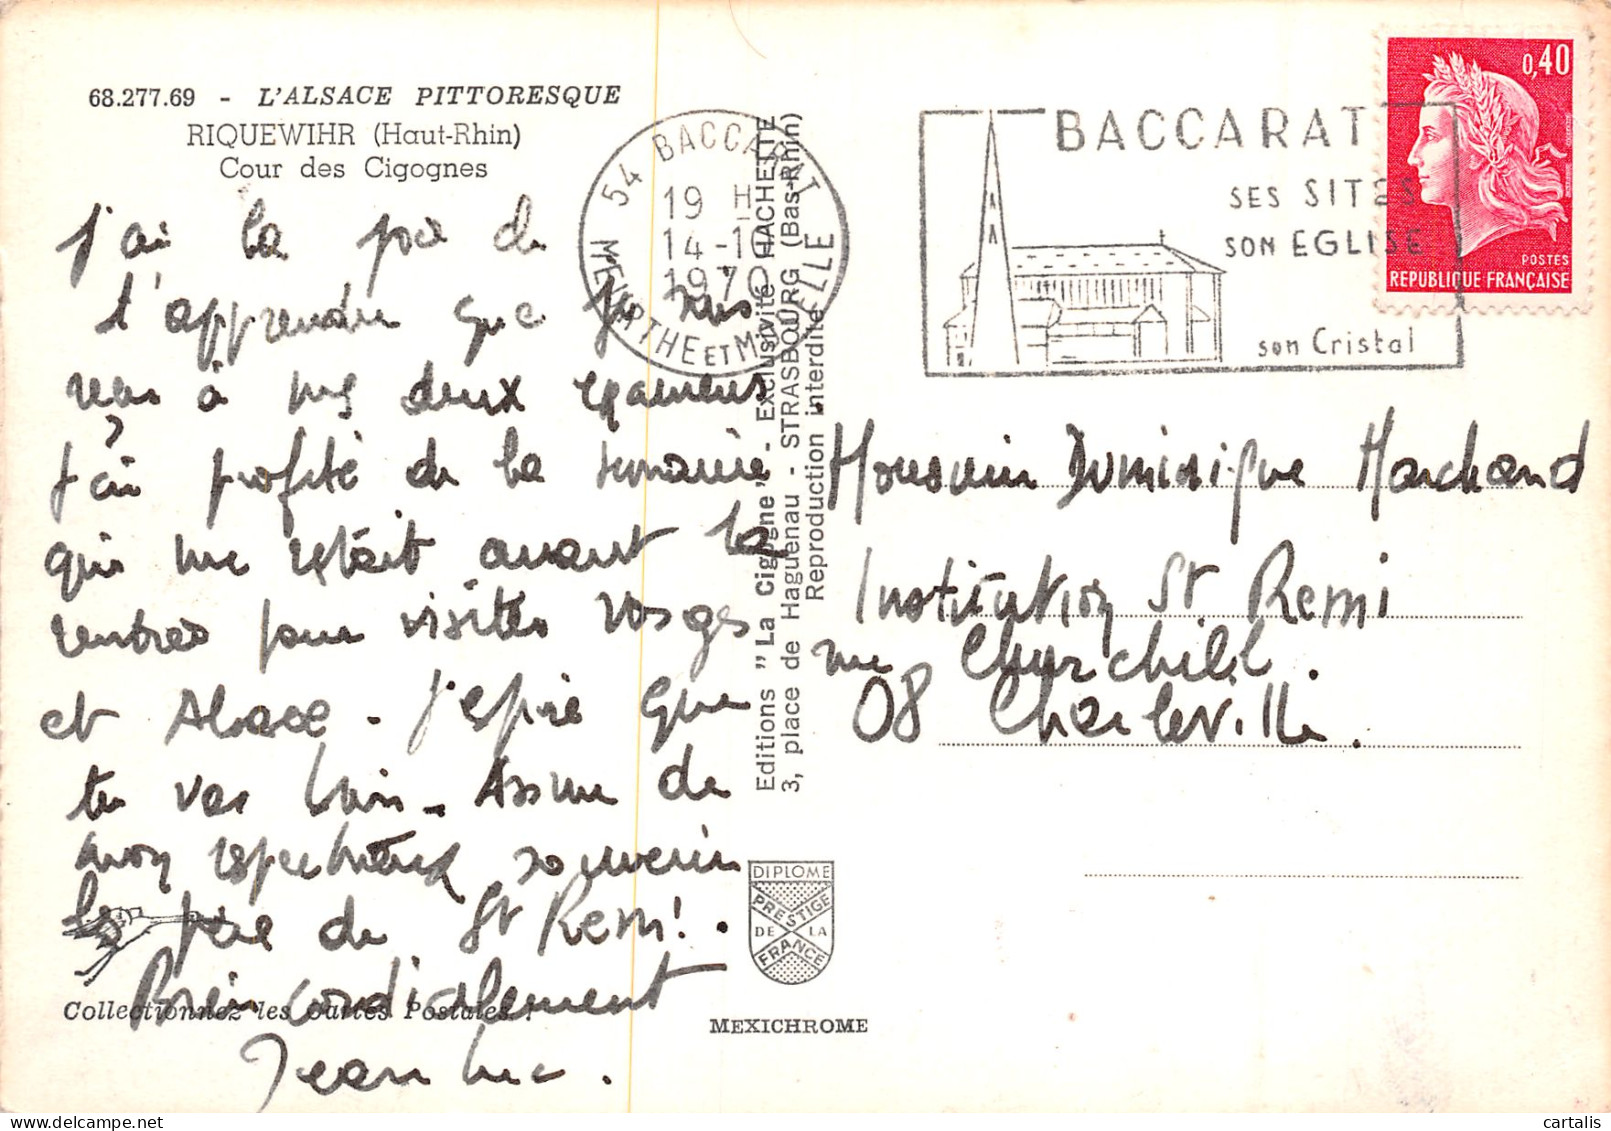 68.277.69 - L'ALSACE PITTORESQUE
RIQUEWIHR (Haut-Rhin)
Cour des Cigognes
j'ai la joie de
t'apprendre que je suis
reçu à mes deux examens.
J'ai profité de la semaine
qui me restait avant la
rentrée pour visiter Vosges
et Alsace. J'espère que
tu vas bien. Assure de
mon respectueux souvenir
les père de St Remi.
Bien cordialement
Jean Luc.
Collectionnez les Cartes Postales !
54 BACCARAT
19 H
14-10
1970
MEURTHE ET MOSELLE
Editions "La Cigogne" - Exclusivité HACHETTE
3, place de Haguenau - STRASBOURG (Bas-Rhin)
Reproduction interdite
DIPLOME
PRESTIGE
DE LA
FRANCE
MEXICHROME
BACCARAT
SES SITES
SON EGLISE
son Cristal
0,40
POSTES
REPUBLIQUE FRANÇAISE
Monsieur Dominique Marchand
Institution St Remi
rue Churchill.
08 Charleville.
cartalis